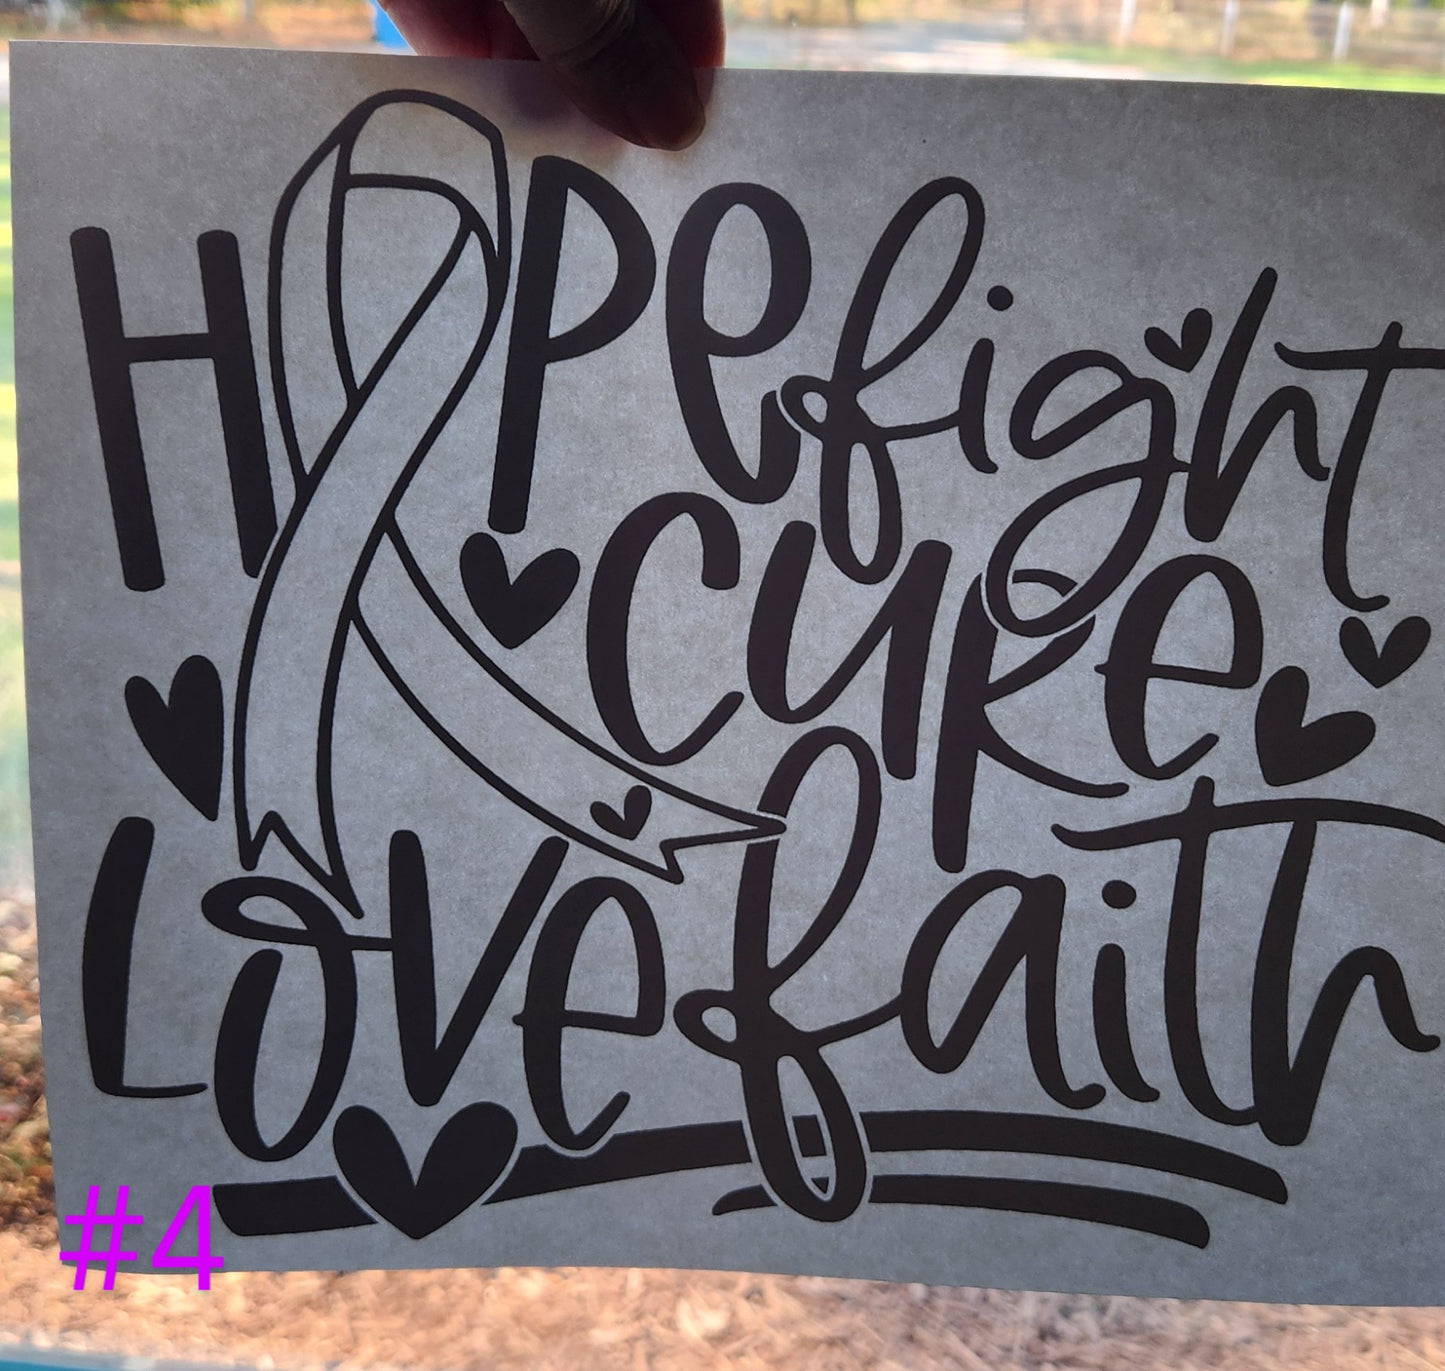 HOPE fight
CURE
LOVE faith
#4